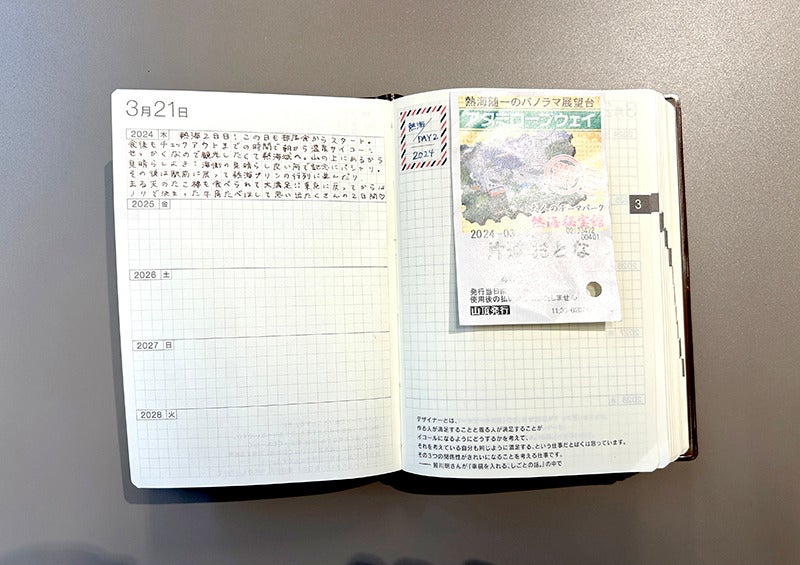 3月21日
2024 木 熱海2日目！この日も部屋食からスタート。
食後もチェックアウトまでの時間で朝から温泉サイコー。
せっかくなので観光したくて熱海城へ。山の上にあるから
見晴らしよき！海側の見晴らし良い所で記念にパシャリ。
その後は駅前に戻って熱海プリンの行列に並んだり
まる天のたこ棒も食べられて大満足！東京に戻ってからは
ノリで決まった牛角たべほして思い出たくさんの2日間♡
2025 金
2026 土
2027 日
2028 火
熱海
DAY2
2024
熱海随一のパノラマ展望台
アタミロープウェイ
おとなのテーマパーク
熱海秘宝館
2024-03-
00401
片道 おとな
発行当日
使用後の払い しません
山頂発行
3
デザイナーとは、
作る人が満足することと着る人が満足することが
イコールになるようにどうするかを考えて、
それを考えている自分も同じように満足する、という仕事だとぼくは思っています。
その3つの関係性がきれいになることを考える仕事です。
—— 皆川明さんが『車輪を入れる、しごとの話。』の中で